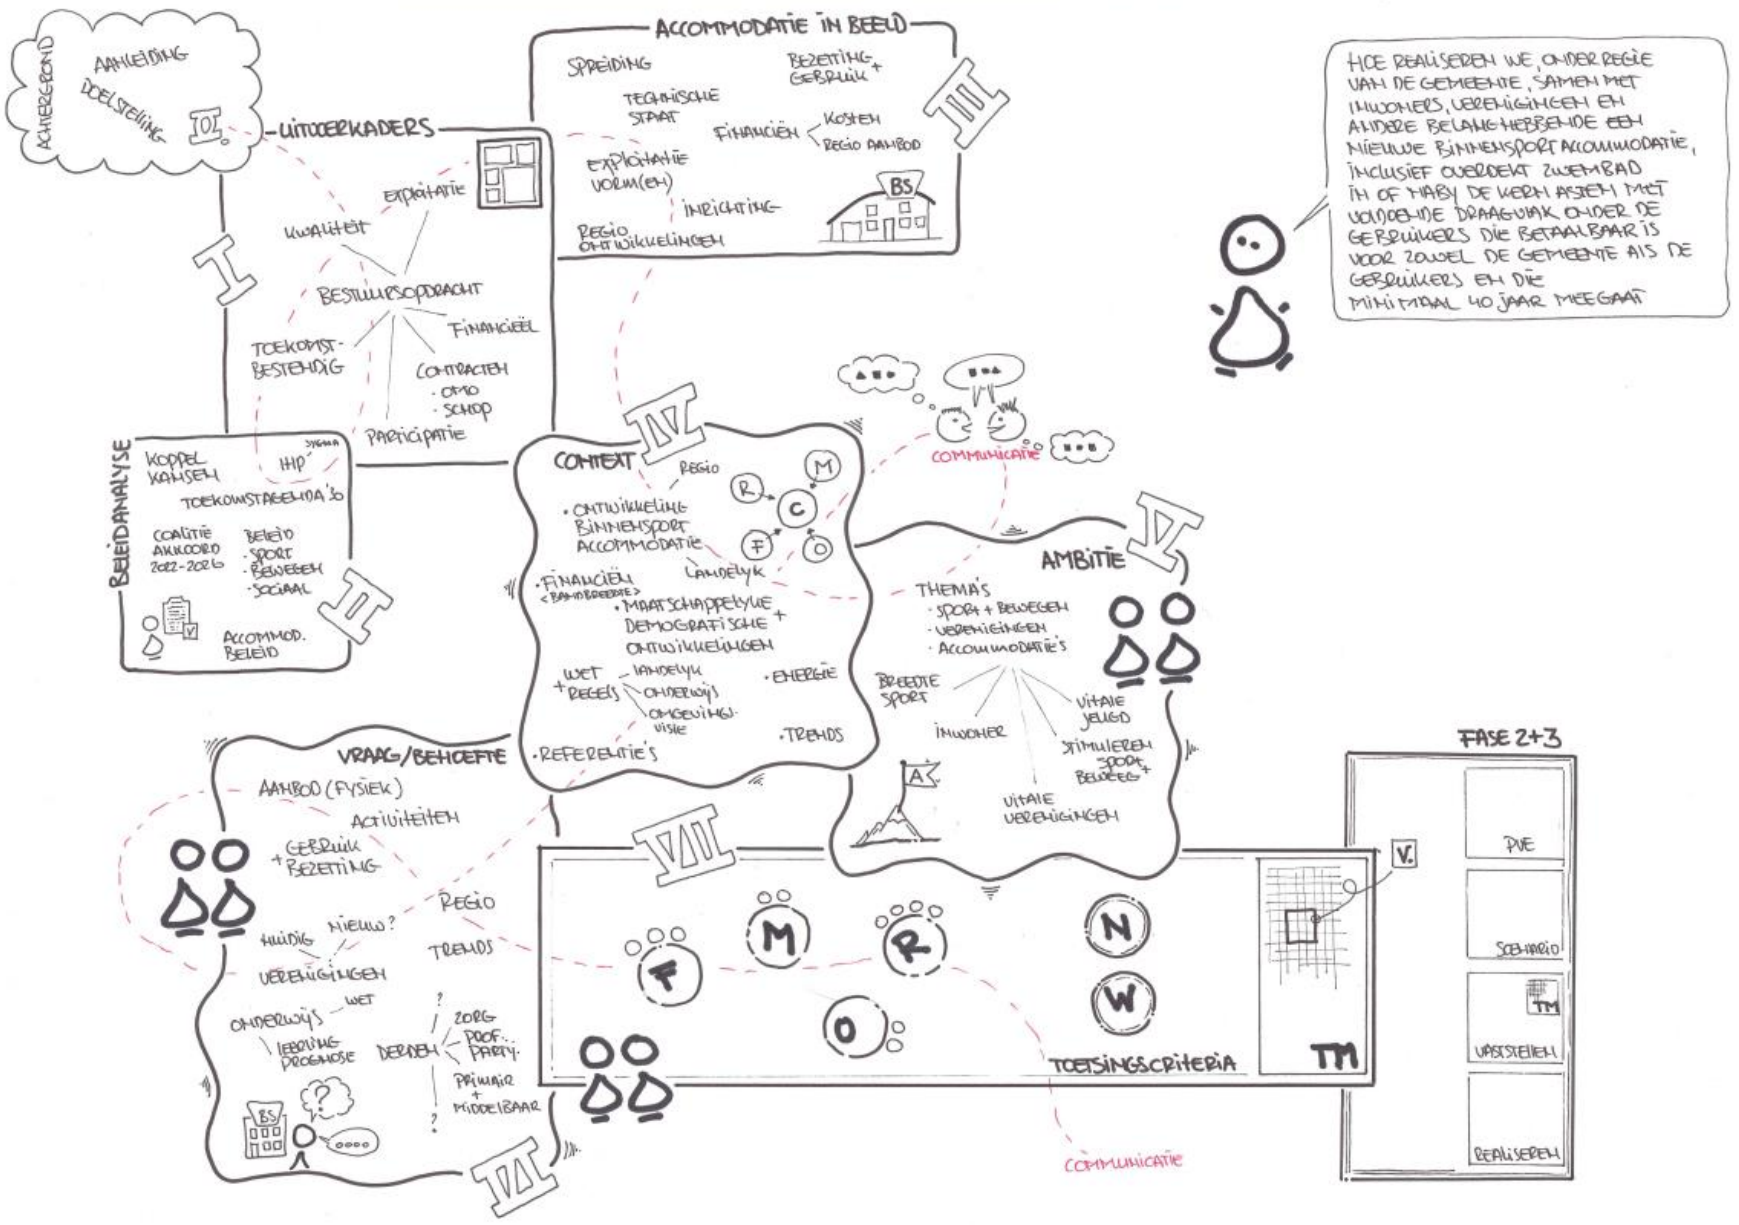 ACHTERGROND
AANLEIDING
DOELSTELLING
0.
UITVOERKADERS
I
EXPLOITATIE
KWALITEIT
BESTUURSOPDRACHT
FINANCIEËL
TOEKOMST-
BESTENDIG
CONTRACTEN
· OMO
· SCHOP
PARTICIPATIE
ACCOMMODATIE IN BEELD
III
SPREIDING
BEZETTING +
GEBRUIK
TECHNISCHE
STAAT
FINANCIËN
KOSTEN
REGIO AANBOD
EXPLOITATIE
VORM(EN)
INRICHTING
REGIO
ONTWIKKELINGEN
BS
HOE REALISEREN WE, ONDER REGIE
VAN DE GEMEENTE, SAMEN MET
INWONERS, VERENIGINGEN EN
ANDERE BELANGHEBBENDE EEN
NIEUWE BINNENSPORTACCOMMODATIE,
INCLUSIEF OVERDEKT ZWEMBAD
IN OF NABY DE KERN ASTEN MET
VOLDOENDE DRAAGVLAK ONDER DE
GEBRUIKERS DIE BETAALBAAR IS
VOOR ZOWEL DE GEMEENTE ALS DE
GEBRUIKERS EN DIE
MINIMAAL 40 JAAR MEEGAAT
BELEIDANALYSE
II
KOPPEL
KANSEN
IHP
TOEKOMSTAGENDA '30
COALITIE
AKKOORD
2022-2026
BELEID
· SPORT
· BEWEGEN
· SOCIAAL
ACCOMMOD.
BELEID
CONTEXT
IV
REGIO
M
R
C
F
O
· ONTWIKKELING
BINNENSPORT
ACCOMMODATIE
LANDELYK
· FINANCIËN
<BANDBREEDTE>
· MAATSCHAPPELYKE +
DEMOGRAFISCHE
ONTWIKKELINGEN
WET
+ REGELS
LANDELYK
ONDERWIJS
OMGEVINGS-
VISIE
· ENERGIE
· TRENDS
· REFERENTIE'S
COMMUNICATIE
AMBITIE
V
THEMA'S
· SPORT + BEWEGEN
· VERENIGINGEN
· ACCOMMODATIE'S
BREEDTE
SPORT
INWONER
VITALE
JEUGD
STIMULEREN
SPORT +
BEWEEG
VITALE
VERENIGINGEN
A
VRAAG/BEHOEFTE
VI
AANBOD (FYSIEK)
ACTIVITEITEN
+ GEBRUIK
BEZETTING
REGIO
TRENDS
HUIDIG
NIEUW?
VERENIGINGEN
WET
ONDERWIJS
LEERLING
PROGNOSE
?
DERDEN
ZORG
PROF...
PARTY.
PRIMAIR
+
MIDDELBAAR
?
BS
?
VII
F
M
R
O
N
W
TOETSINGSCRITERIA
TM
COMMUNICATIE
FASE 2+3
V.
PVE
SCENARIO
TM
VASTSTELLEN
REALISEREN